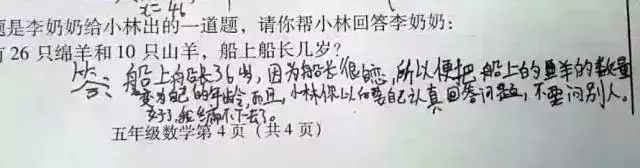 x=46
题是李奶奶给小林出的一道题，请你帮小林回答李奶奶：
有26只绵羊和10只山羊，船上船长几岁？
答：船上船长36岁，因为船长很恋，所以便把船上的羊的数量
变为自己的年龄，而且，小林你以后要自己认真回答问题，不要问别人。
好了，我编不下去了。
五年级数学第4页（共4页）